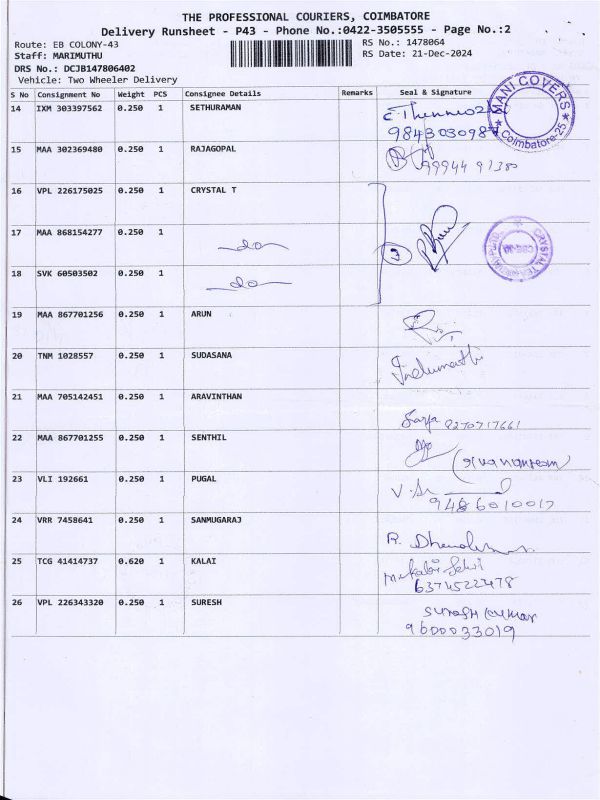 THE PROFESSIONAL COURIERS, COIMBATORE
Delivery Runsheet - P43 - Phone No.:0422-3505555 - Page No.:2
Route: EB COLONY-43
RS No.: 1478064
Staff: MARIMUTHU
RS Date: 21-Dec-2024
DRS No.: DCJB147806402
Vehicle: Two Wheeler Delivery
S No Consignment No Weight PCS Consignee Details Remarks Seal & Signature
MANI COVERS
Coimbatore-25
14 IXM 303397562 0.250 1 SETHURAMAN
15 MAA 302369480 0.250 1 RAJAGOPAL
16 VPL 226175025 0.250 1 CRYSTAL T
17 MAA 868154277 0.250 1
do
18 SVK 60503502 0.250 1
do
19 MAA 867701256 0.250 1 ARUN
20 TNM 1028557 0.250 1 SUDASANA
Indumathi
21 MAA 705142451 0.250 1 ARAVINTHAN
22 MAA 867701255 0.250 1 SENTHIL
23 VLI 192661 0.250 1 PUGAL
9486010017
24 VRR 7458641 0.250 1 SANMUGARAJ
25 TCG 41414737 0.620 1 KALAI
6374522478
26 VPL 226343320 0.250 1 SURESH
SURESH KUMAR
9600033019